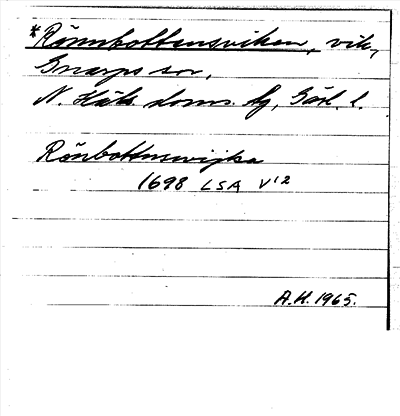 *Rönnbottensviken, vik,
Gnarps sn,
N. Häls. doms. tg, Gävl. l.
Rönbottnswijka
1698 LSA V12
A.H. 1965.